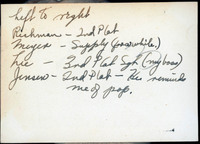 Left to right
Richman - 2nd Plat
Meyer - Supply (for awhile.)
Lee - 3rd Plat Sgt (my boss)
Jensen - 2nd Plat - He reminds
me of pop.